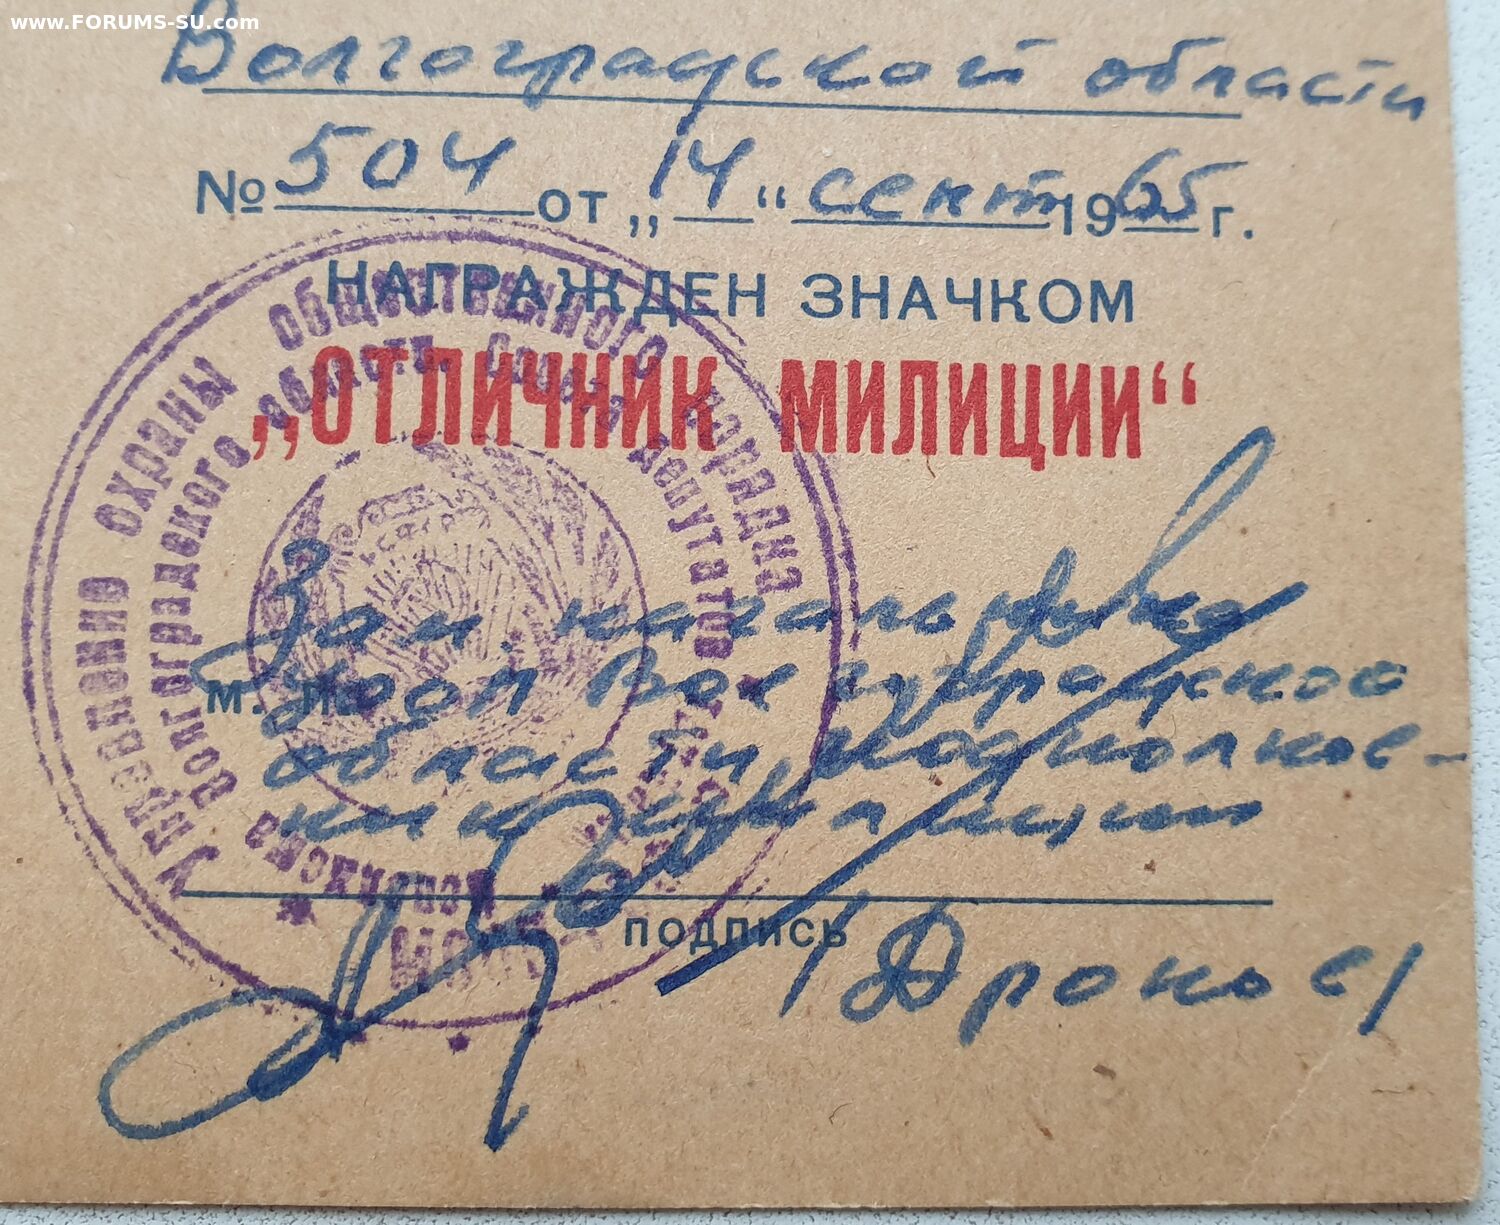 www.FORUMS-SU.com
Волгоградской области
№ 504 от „14“ сент 1965 г.
НАГРАЖДЕН ЗНАЧКОМ
„ОТЛИЧНИК МИЛИЦИИ“
Управление охраны общественного порядка
Волгоградского област. Совета депутатов
Зам. начальника
м. п.
УООП Волгоградской
области, подполков-
ник милиции
подпись
/Дронов/